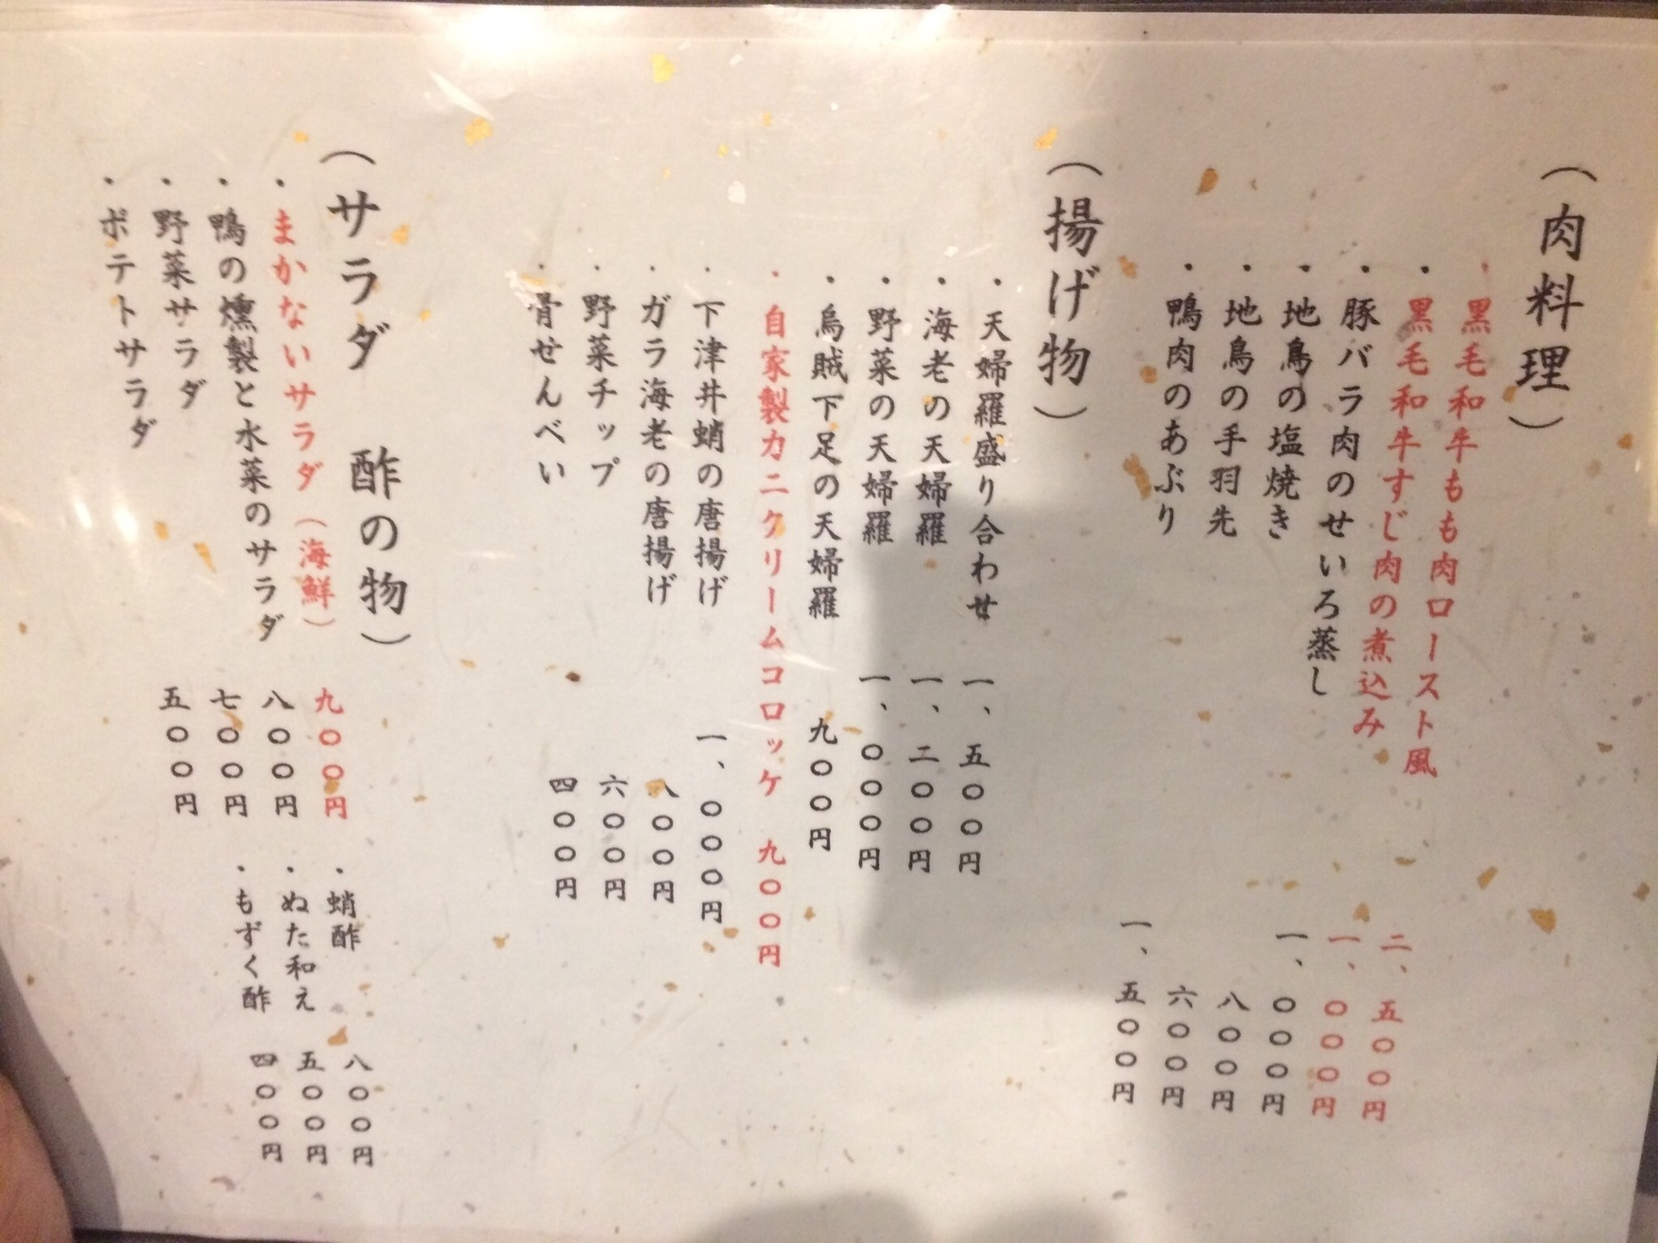 （肉料理）
・黒毛和牛もも肉ロースト風 二、五〇〇円
・黒毛和牛すじ肉の煮込み 一、〇〇〇円
・豚バラ肉のせいろ蒸し 一、〇〇〇円
・地鳥の塩焼き 八〇〇円
・地鳥の手羽先 六〇〇円
・鴨肉のあぶり 一、五〇〇円
（揚げ物）
・天婦羅盛り合わせ 一、五〇〇円
・海老の天婦羅 一、二〇〇円
・野菜の天婦羅 一、〇〇〇円
・烏賊下足の天婦羅 九〇〇円
・自家製カニクリームコロッケ 九〇〇円
・下津井蛸の唐揚げ 一、〇〇〇円
・ガラ海老の唐揚げ 八〇〇円
・野菜チップ 六〇〇円
・骨せんべい 四〇〇円
（サラダ 酢の物）
・まかないサラダ（海鮮） 九〇〇円
・鴨の燻製と水菜のサラダ 八〇〇円
・野菜サラダ 七〇〇円
・ポテトサラダ 五〇〇円
・蛸酢 八〇〇円
・ぬた和え 五〇〇円
・もずく酢 四〇〇円